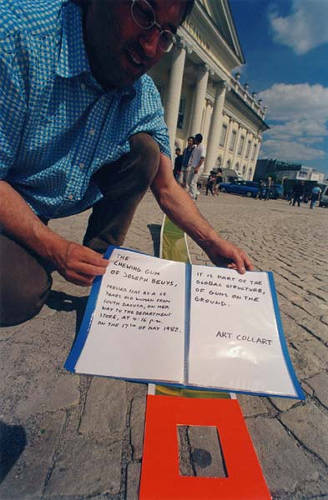 THE
CHEWING GUM
OF JOSEPH BEUYS,
PRESSED FLAT BY A 58
YEARS OLD WOMAN FROM
SOUTH DAKOTA, ON HER
WAY TO THE DEPARTMENT
STORE, AT 4:16 P.M.
ON THE 17TH OF MAY 1982.
IT IS PART OF THE
GLOBAL STRUCTURE,
OF GUMS ON THE
GROUND.
ART COLLART